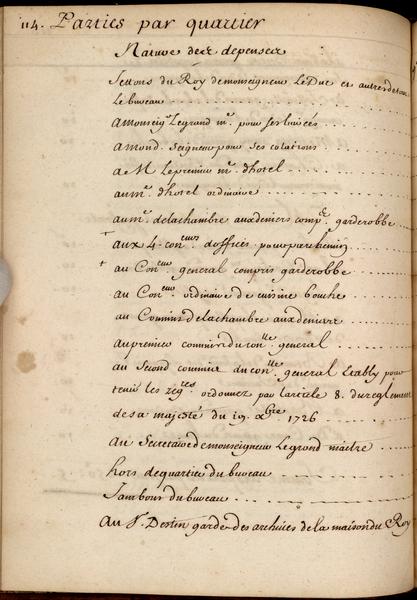 114. Parties par quartier
Nature des depenses
Jettons du Roy de monseigneur Le Duc et autres de tout
Le bureau
A Monseigr. Legrand me. pour ses livrées
A mond. Seigneur pour ses colations
a M. Le premier me. dhotel
au me. dhotel ordinaire
au me. delachambre auxdeniers compris garderobbe
aux 4. coneurs. doffices pour parchemin
au Coneur. general compris garderobbe
au Coneur. ordinaire de cuisine bouche
au Commis delachambre auxdeniers
au premier commis du conlle. general
au Second commis du conlle. general Etably pour
tenir les regres. ordonnez par larticle 8. du reglement
de sa majesté du 19. Xbre 1726
Au Secretaire de monseigneur Le grand maitre
hors de quartier du bureau
Tambour du bureau
Au Sr. Destin garde des archives de la maison du Roy